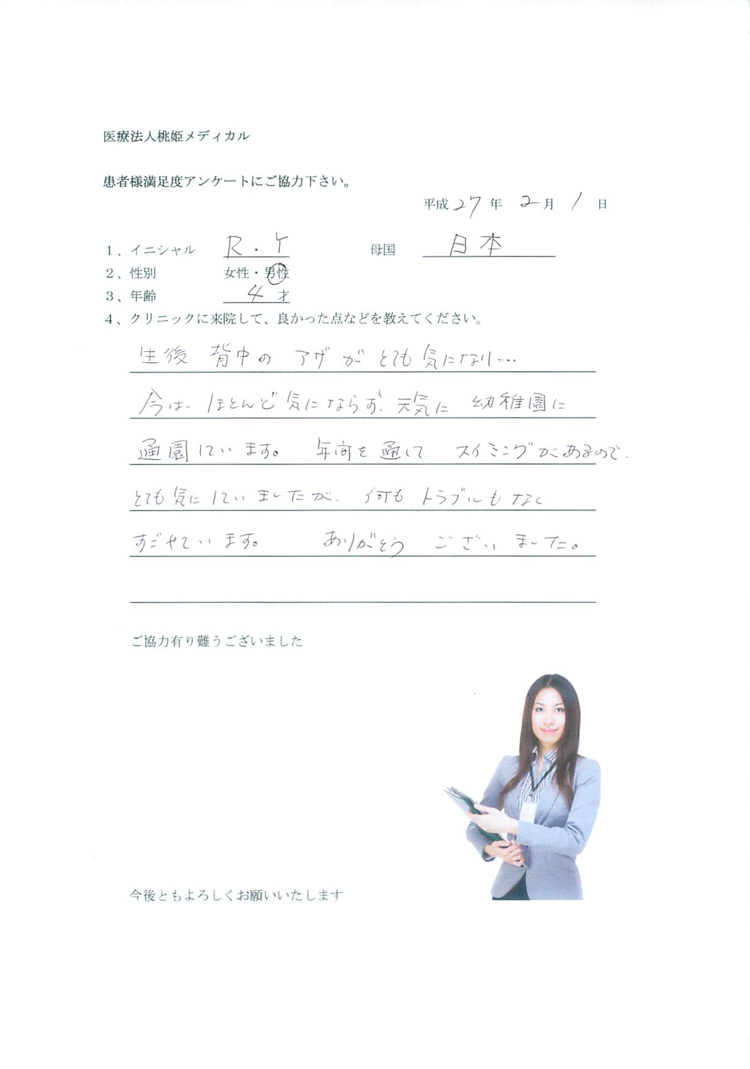 医療法人桃姫メディカル
患者様満足度アンケートにご協力下さい。
平成 27 年 2 月 1 日
1、イニシャル R.Y 母国 日本
2、性別 女性・男性
3、年齢 4 才
4、クリニックに来院して、良かった点などを教えてください。
生後 背中の アザが とても気になり…
今は、ほとんど気にならず、元気に 幼稚園に
通園しています。 年間を通して スイミングがあるので、
とても気にしていましたが、何も トラブルもなく
すごせています。 ありがとう ございました。
ご協力有り難うございました
今後ともよろしくお願いいたします